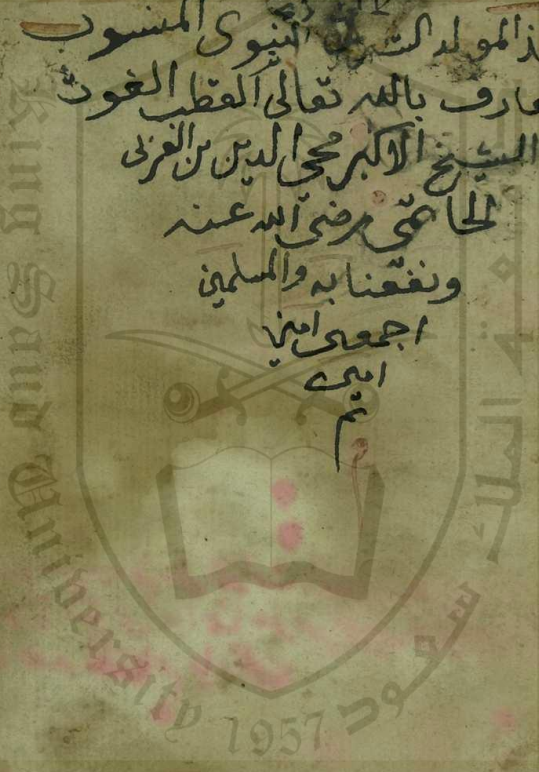 هذا المولد الشريف النبوي المنسوب
عارف بالله تعالى القطب الغوث
الشيخ الاكبر محي الدين بن العربي
الحاتمي رضي الله عنه
ونفعنا به والمسلمين
اجمعين امين
امين
تم
King Saud University
1957
جامعة الملك سعود